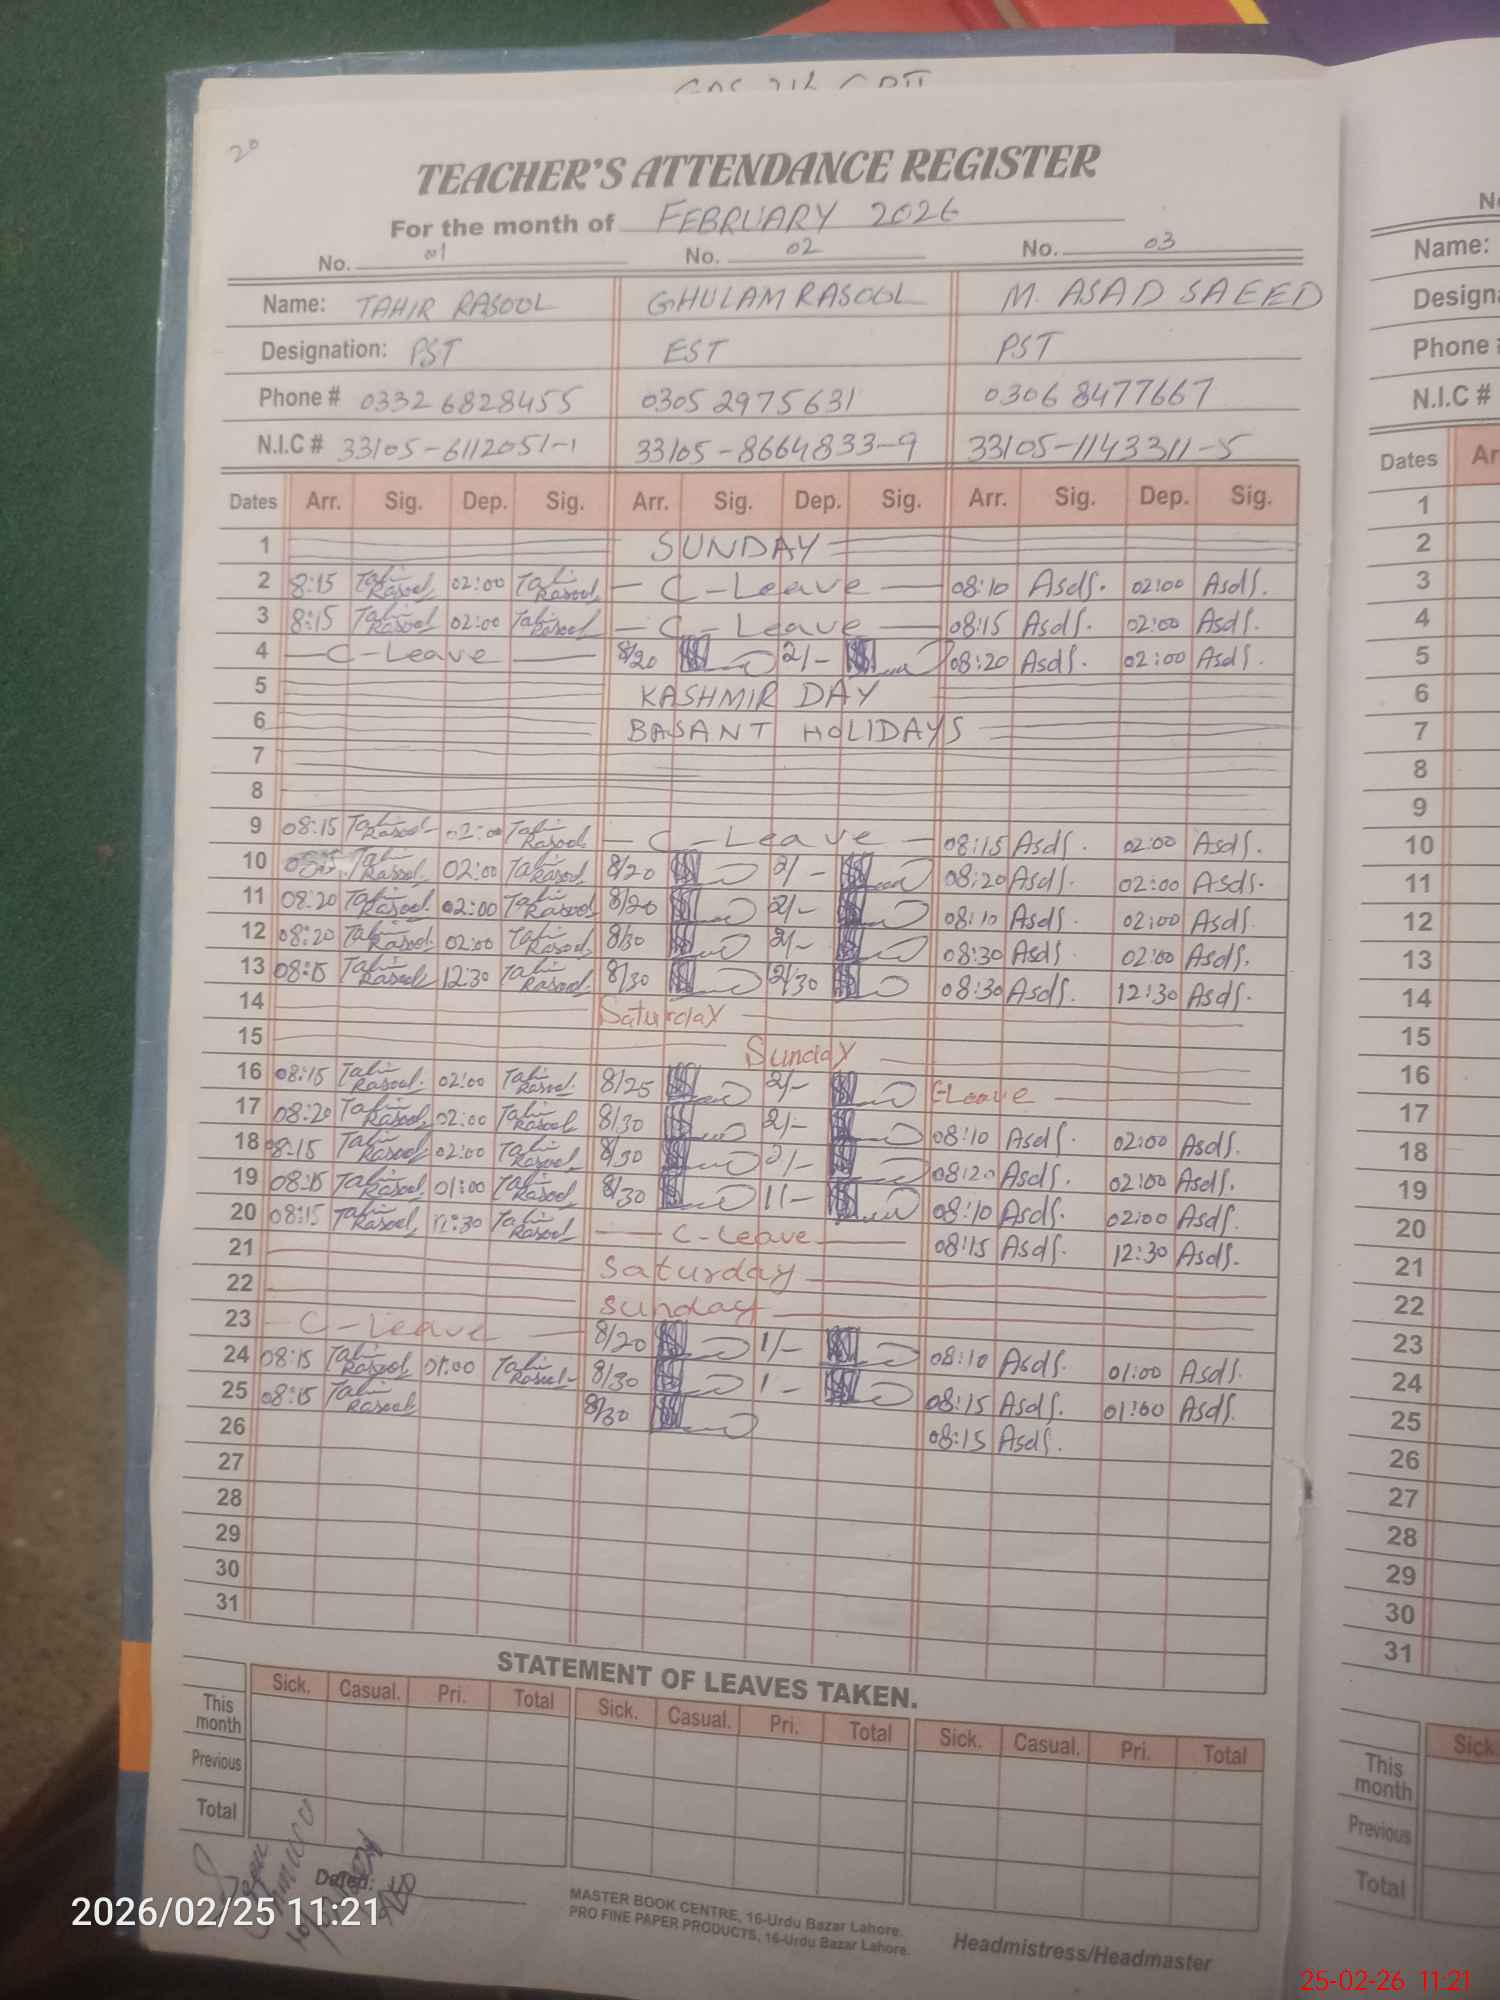 20
TEACHER'S ATTENDANCE REGISTER
For the month of FEBRUARY 2026
No. 01 No. 02 No. 03
Name: TAHIR RASOOL GHULAM RASOOL M. ASAD SAEED
Designation: PST EST PST
Phone # 0332 6828455 0305 2975631 0306 8477667
N.I.C # 33105-6112051-1 33105-8664833-9 33105-1143311-5
Dates Arr. Sig. Dep. Sig. Arr. Sig. Dep. Sig. Arr. Sig. Dep. Sig.
1 SUNDAY
2 8:15 Tahir Rasool 02:00 Tahir Rasool C-Leave 08:10 Asds. 02:00 Asds.
3 8:15 Tahir Rasool 02:00 Tahir Rasool C-Leave 08:15 Asds. 02:00 Asds.
4 C-Leave 8/20 2/- 08:20 Asds. 02:00 Asds.
5 KASHMIR DAY
6 BASANT HOLIDAYS
7
8
9 08:15 Tahir Rasool 02:00 Tahir Rasool C-Leave 08:15 Asds. 02:00 Asds.
10 Tahir Rasool 02:00 Tahir Rasool 8/20 2/- 08:20 Asds. 02:00 Asds.
11 08:20 Tahir Rasool 02:00 Tahir Rasool 8/20 2/- 08:10 Asds. 02:00 Asds.
12 08:20 Tahir Rasool 02:00 Tahir Rasool 8/30 2/- 08:30 Asds. 02:00 Asds.
13 08:15 Tahir Rasool 12:30 Tahir Rasool 8/30 12/30 08:30 Asds. 12:30 Asds.
14 Saturday
15 Sunday
16 08:15 Tahir Rasool 02:00 Tahir Rasool 8/25 2/- C-Leave
17 08:20 Tahir Rasool 02:00 Tahir Rasool 8/30 2/- 08:10 Asds. 02:00 Asds.
18 08:15 Tahir Rasool 02:00 Tahir Rasool 8/30 2/- 08:20 Asds. 02:00 Asds.
19 08:15 Tahir Rasool 01:00 Tahir Rasool 8/30 1/- 08:10 Asds. 02:00 Asds.
20 08:15 Tahir Rasool 12:30 Tahir Rasool C-Leave 08:15 Asds. 12:30 Asds.
21 Saturday
22 Sunday
23 C-Leave 8/20 1/- 08:10 Asds. 01:00 Asds.
24 08:15 Tahir Rasool 01:00 Tahir Rasool 8/30 1/- 08:15 Asds. 01:00 Asds.
25 08:15 Tahir Rasool 8/30 08:15 Asds.
26
27
28
29
30
31
STATEMENT OF LEAVES TAKEN.
Sick. Casual. Pri. Total Sick. Casual. Pri. Total Sick. Casual. Pri. Total
This month
Previous
Total
Dated:
MASTER BOOK CENTRE, 16-Urdu Bazar Lahore.
PRO FINE PAPER PRODUCTS, 16-Urdu Bazar Lahore.
Headmistress/Headmaster
2026/02/25 11:21
25-02-26 11:21
Name:
Phone #
N.I.C #
Dates
1
2
3
4
5
6
7
8
9
10
11
12
13
14
15
16
17
18
19
20
21
22
23
24
25
26
27
28
29
30
31
Sick.
This month
Previous
Total